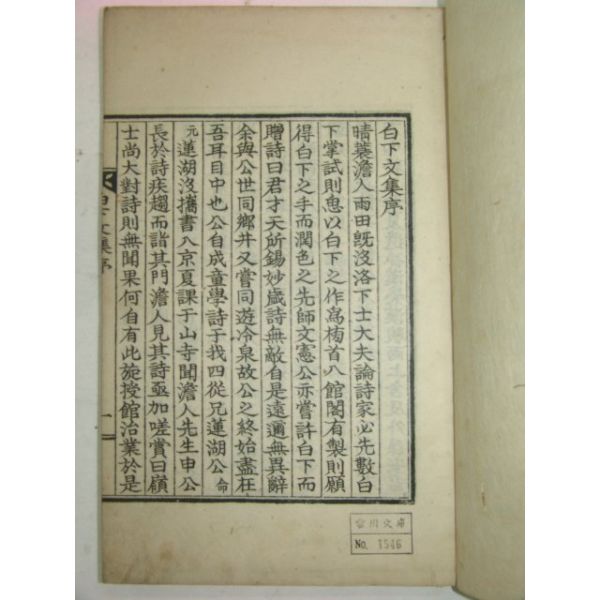 白下文集序
晴蓑澹人雨田旣沒洛下士大夫論詩家必先數白
下掌試則急以白下之作爲楠首八館閣有製則願
得白下之手而潤色之先師文憲公亦嘗許白下而
贈詩曰君才天所錫妙歲詩無敵自是遠邇無異辭
余與公世同鄕井又嘗同遊冷泉故公之終始盡在
吾耳目中也公自成童學詩于找四從兄蓮湖公命
元蓮湖沒攜書入京夏課于山寺聞澹人先生申公
長於詩疾趨而詣其門澹人見其詩亟加嗟賞曰嶺
士尚大對詩則無聞果何自有此旋授館治業於是
白下文集序
一
雲川文庫
No. 1546